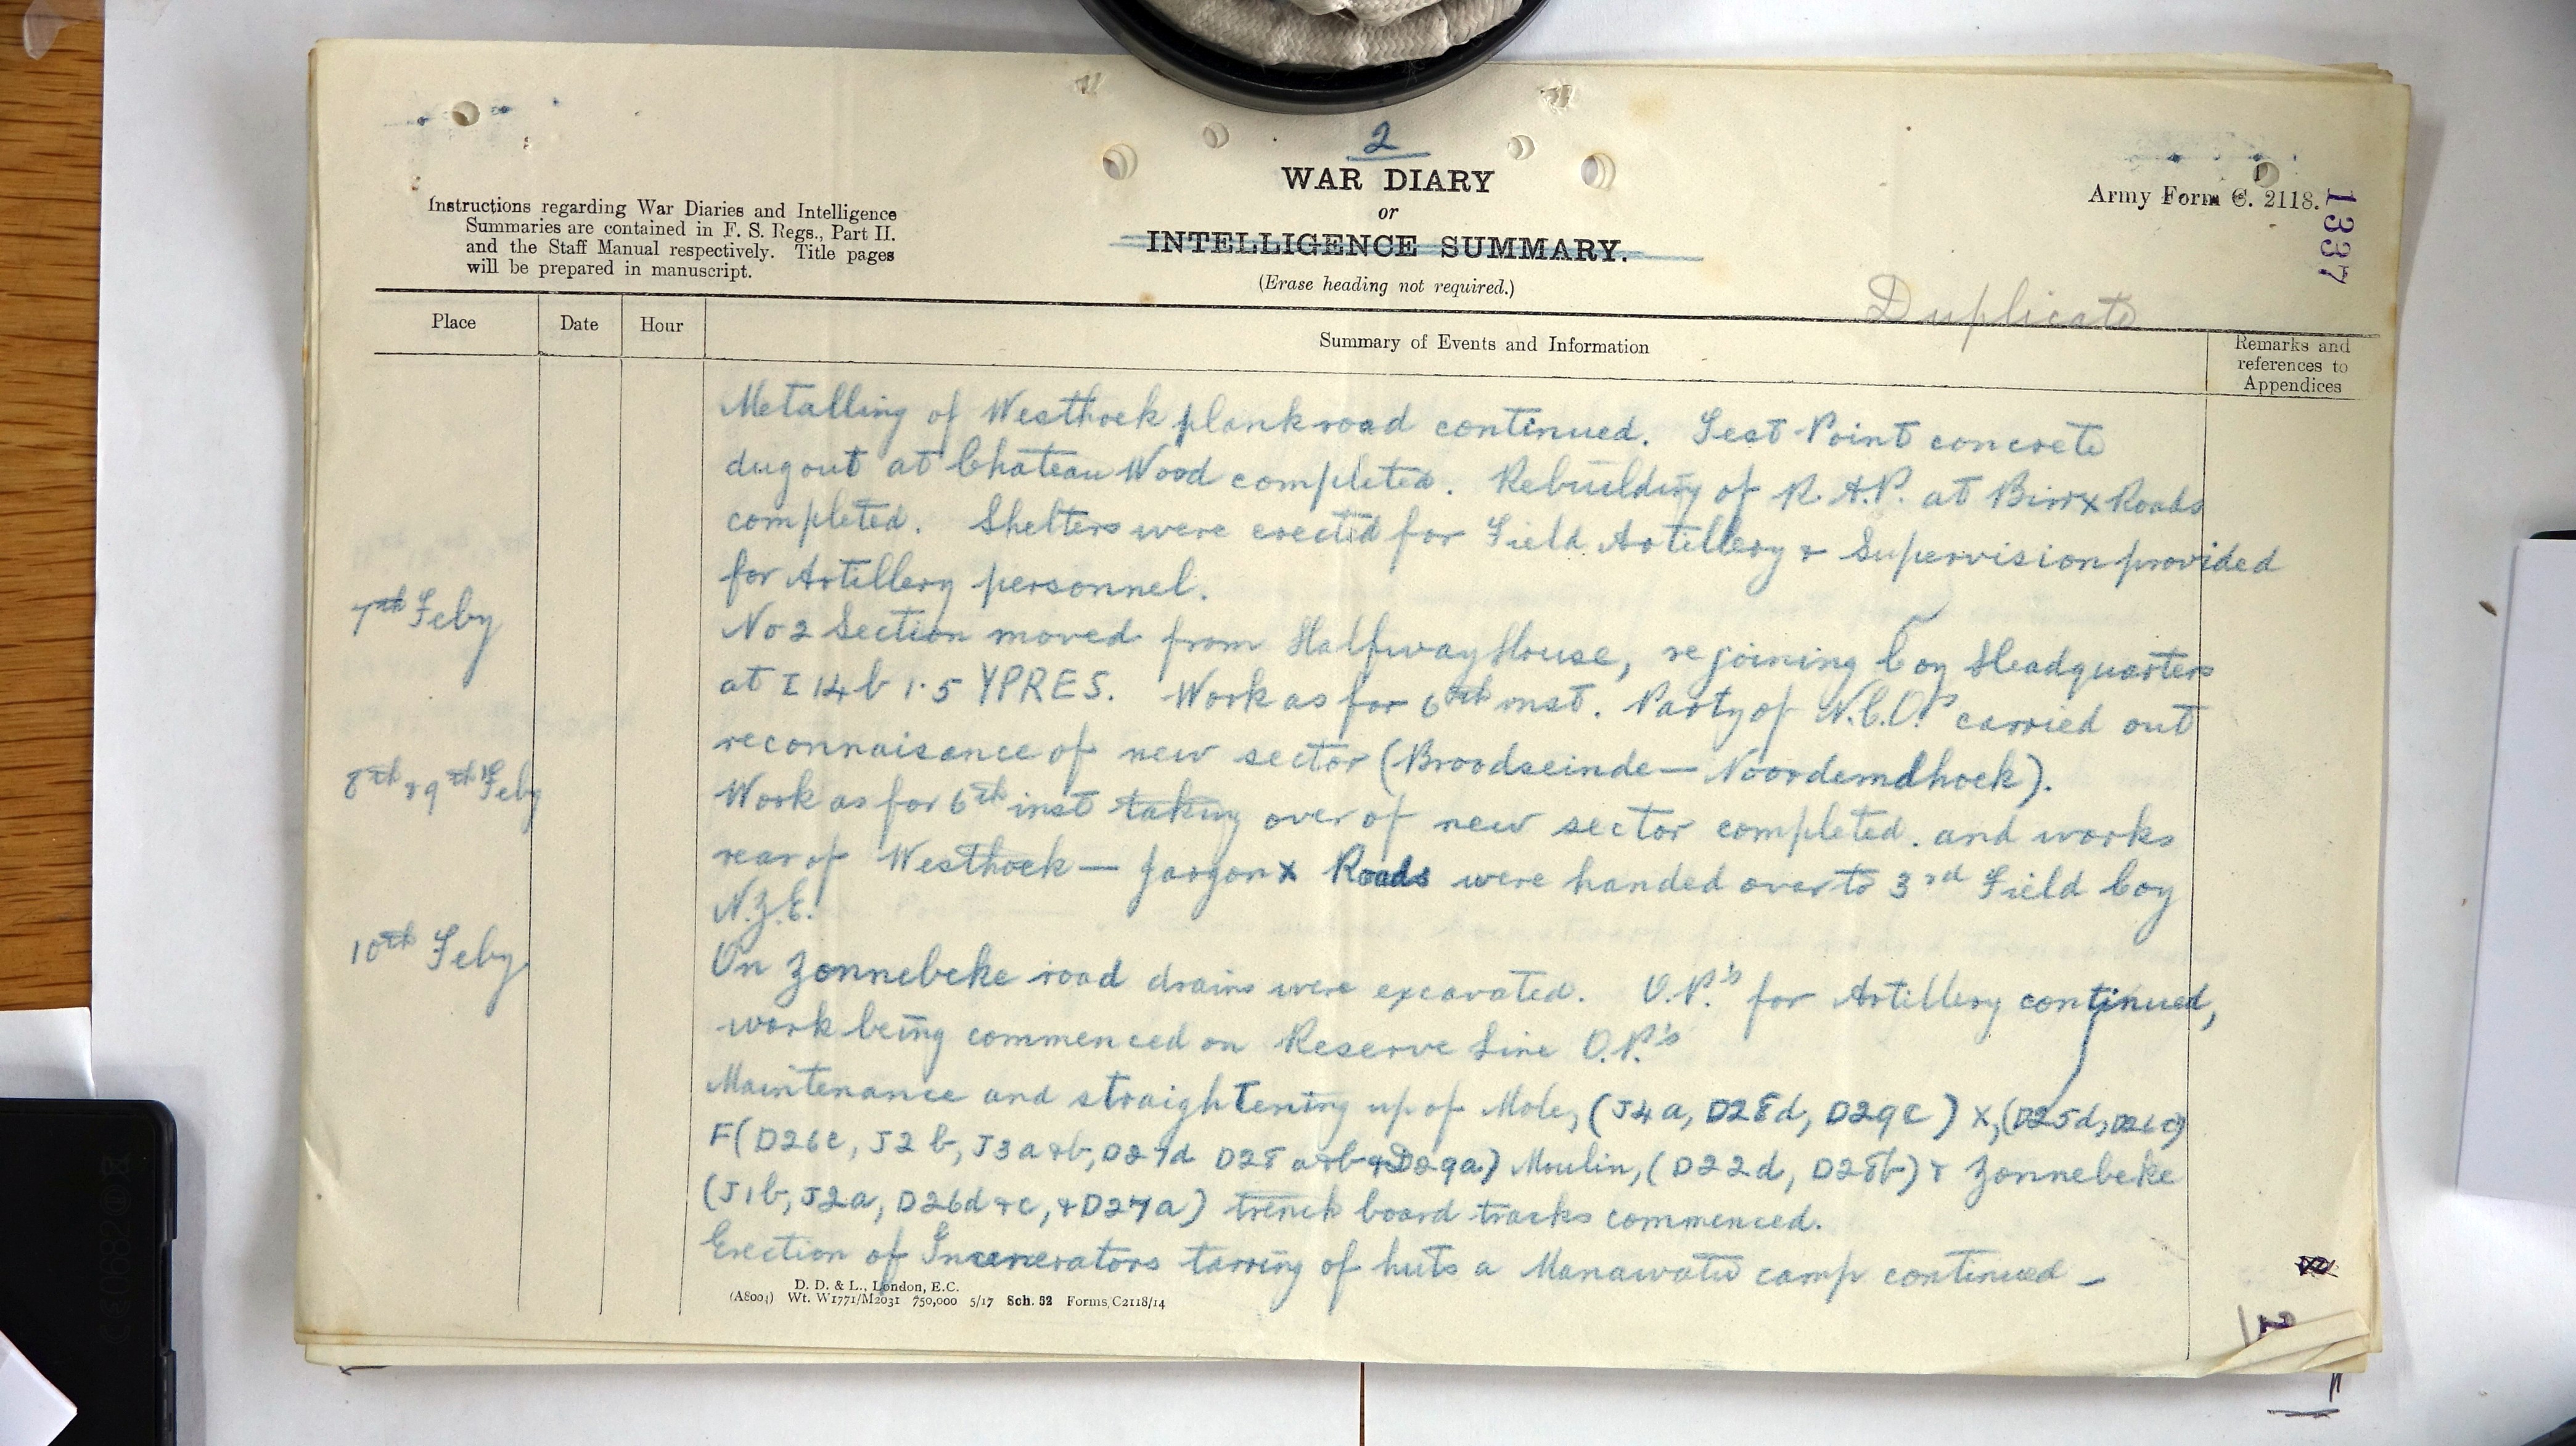 2
WAR DIARY
or
INTELLIGENCE SUMMARY.
(Erase heading not required.)
Instructions regarding War Diaries and Intelligence
Summaries are contained in F. S. Regs., Part II.
and the Staff Manual respectively. Title pages
will be prepared in manuscript.
Army Form C. 2118.
1337
Duplicate
Place
Date
Hour
Summary of Events and Information
Remarks and
references to
Appendices
Metalling of Westhoek plank road continued. Test Point concrete
dugout at Chateau Wood completed. Rebuilding of R.A.P. at Birr x Roads
completed. Shelters were erected for Field Artillery & Supervision provided
for Artillery personnel.
7th Feby
No 2 Section moved from Halfway House, rejoining Coy Headquarters
at I 14 b 1.5 YPRES. Work as for 6th inst. Party of N.C.O.s carried out
reconnaisance of new sector (Broodseinde — Noordemdhoek).
8th & 9th Feby
Work as for 6th inst taking over of new sector completed. and works
rear of Westhoek — Jargon x Roads were handed over to 3rd Field Coy
N.Z.E.
10th Feby
On Zonnebeke road drains were excavated. O.P.'s for Artillery continued,
work being commenced on Reserve Line O.P.'s
Maintenance and straightening up of Mole, (J4a, D28d, D29c) X, (D25d, D26c)
F (D26c, J2b, J3a&b, D27d D28 a&b & D29a) Moulin, (D22d, D28b) & Zonnebeke
(J1b, J2a, D26d & c, & D27a) trench board tracks commenced.
Erection of Incenerators tarring of huts a Manawatu camp continued —
D. D. & L., London, E.C.
(A8001) Wt. W1771/M2031 750,000 5/17 Sch. 52 Forms/C2118/14